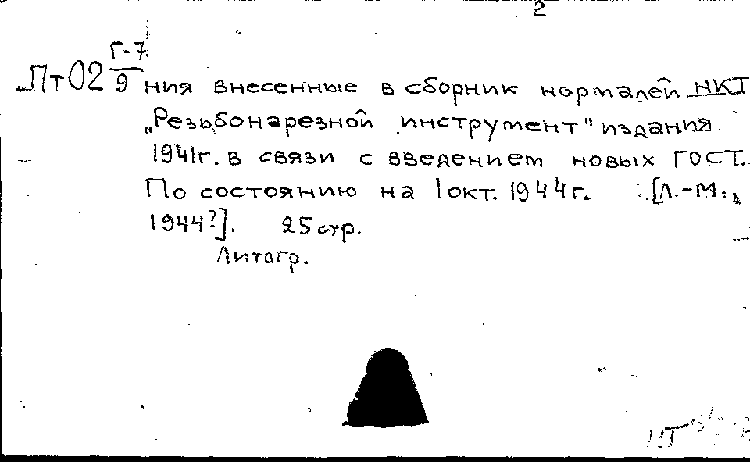 2
Г-7
ЛТ02 9 ния внесенные в сборник нормалей НКТ
„Резьбонарезной инструмент" издания
1941г. в связи с введением новых ГОСТ.
По состоянию на 1 окт. 1944г. [Л.-М.,
1944?]. 25 стр.
Литогр.